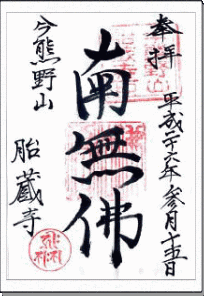 奉拝
平成二十六年参月十五日
南無佛
今熊野山
胎蔵寺